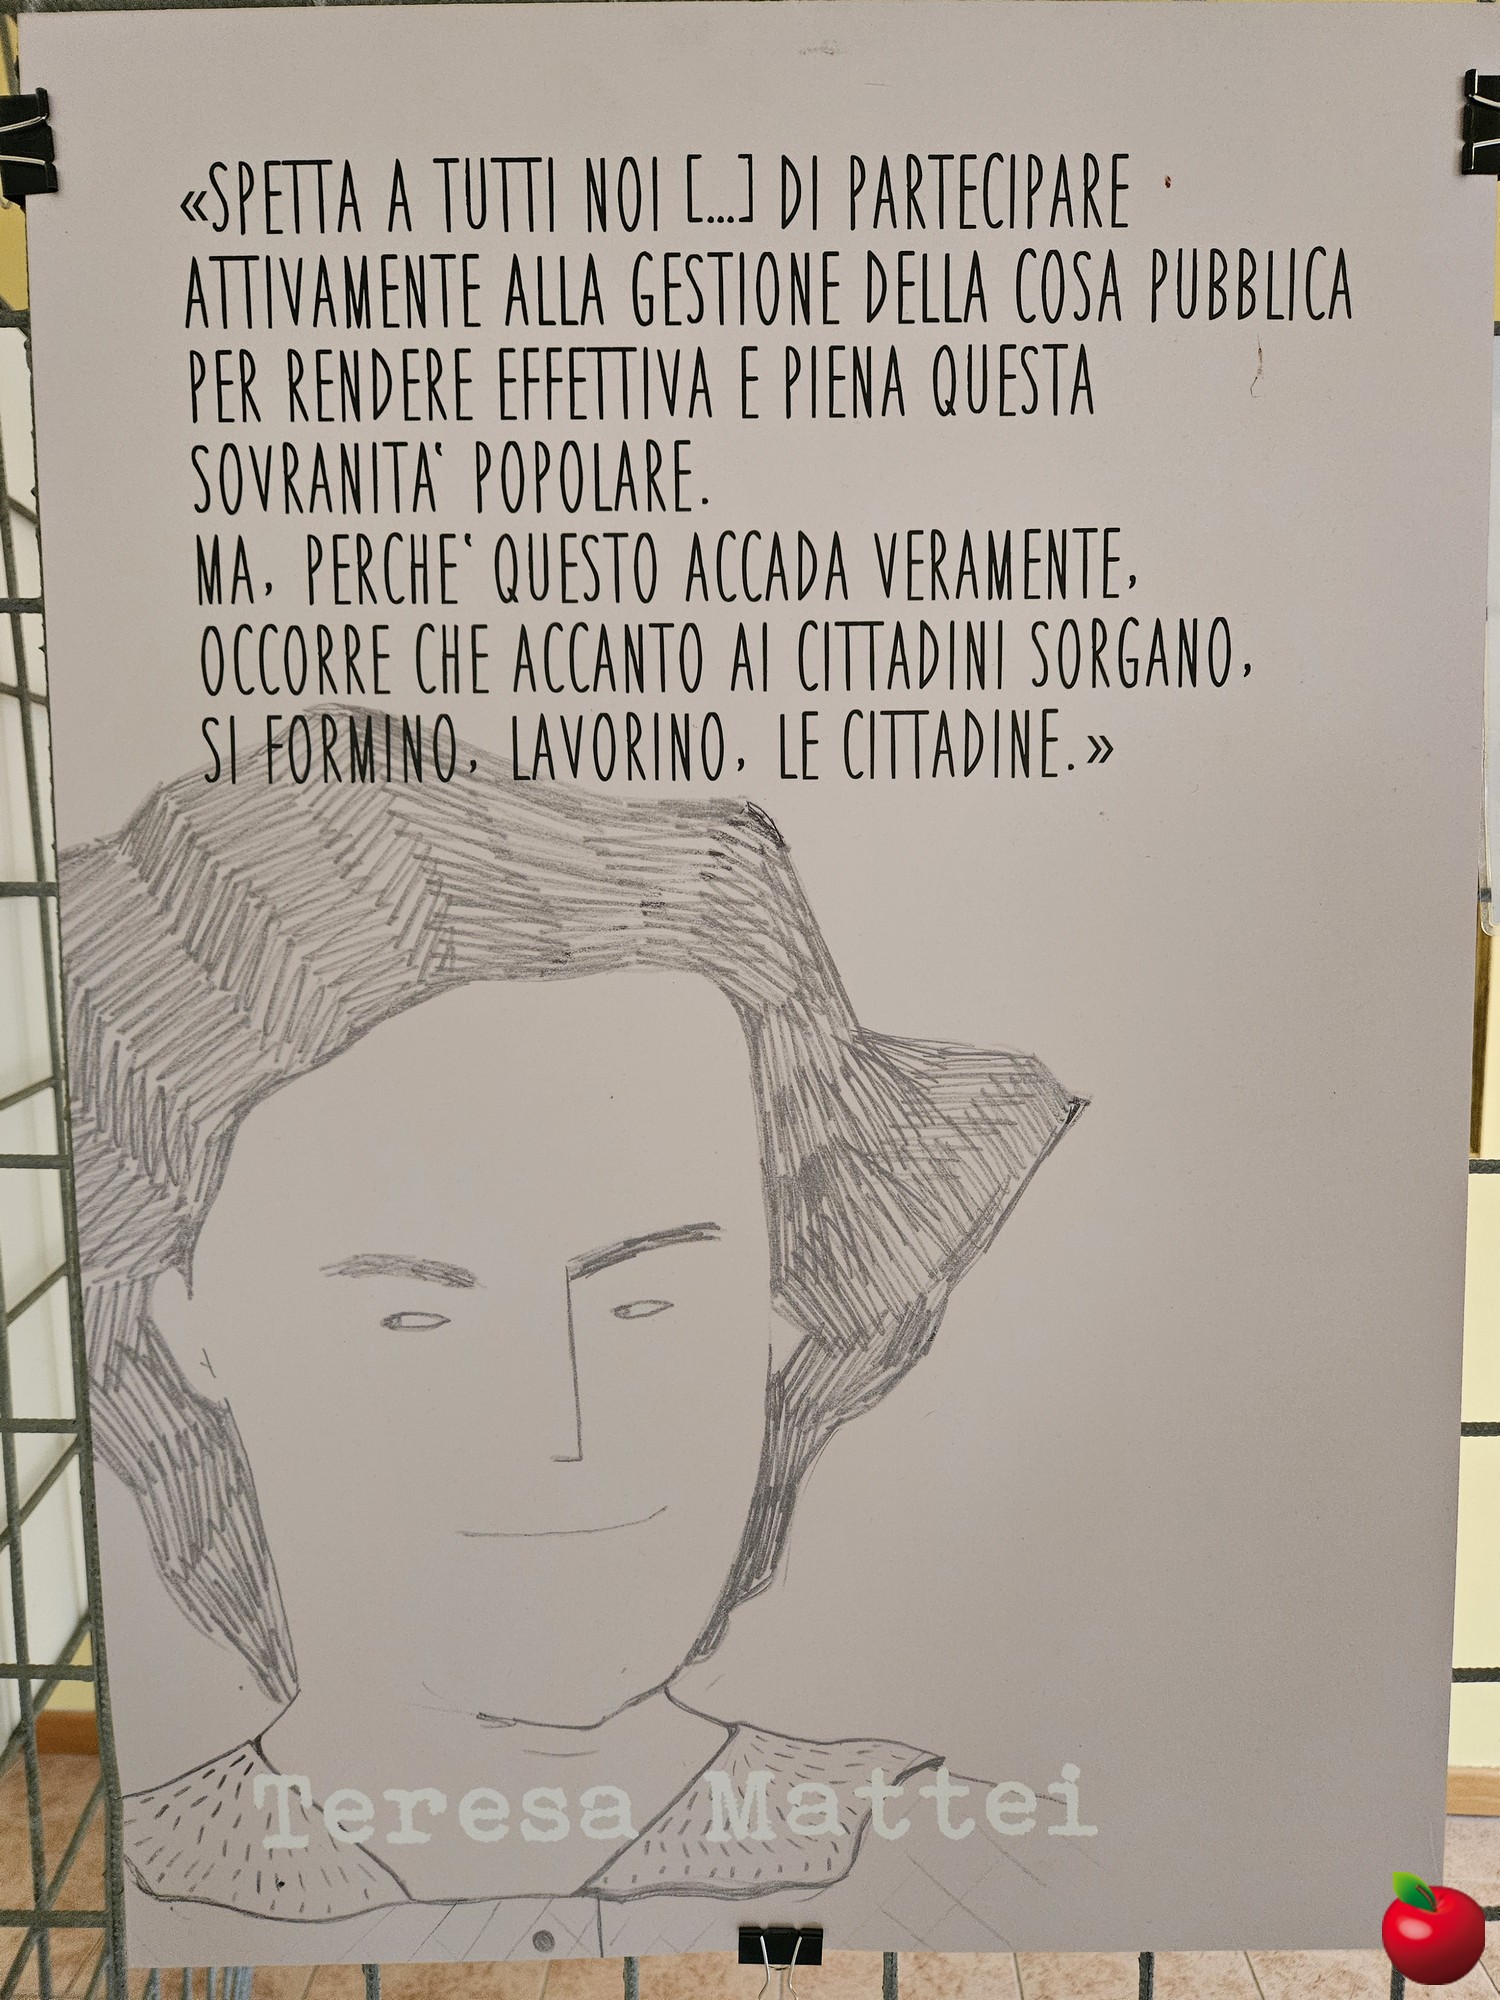 «SPETTA A TUTTI NOI [...] DI PARTECIPARE
ATTIVAMENTE ALLA GESTIONE DELLA COSA PUBBLICA
PER RENDERE EFFETTIVA E PIENA QUESTA
SOVRANITA‘ POPOLARE.
MA, PERCHE‘ QUESTO ACCADA VERAMENTE,
OCCORRE CHE ACCANTO AI CITTADINI SORGANO,
SI FORMINO, LAVORINO, LE CITTADINE.»
Teresa Mattei